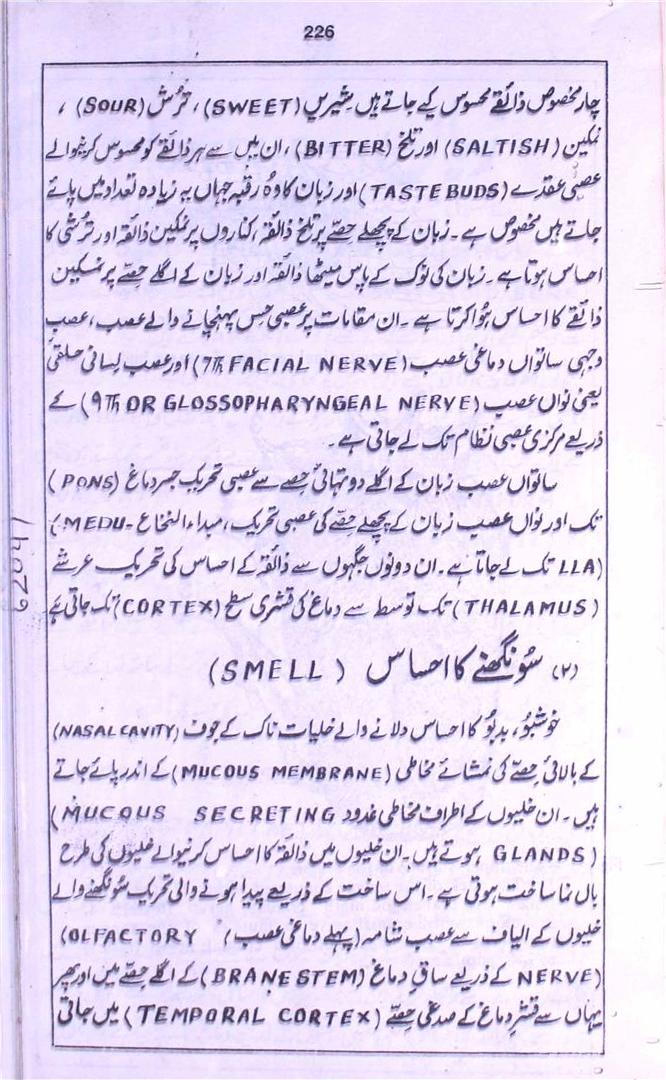 226
چار مخصوص ذائقے محسوس کیے جاتے ہیں شیریں (SWEET) ، ترش (SOUR) ،
نمکین (SALTISH) اور تلخ (BITTER) ، ان میں سے ہر ذائقے کو محسوس کرنیوالے
عصبی عقدے (TASTE BUDS) اور زبان کا وہ رقبہ جہاں یہ زیادہ تعداد میں پائے
جاتے ہیں مخصوص ہے ۔ زبان کے پچھلے حصے پر تلخ ذائقہ ، کناروں پر نمکین ذائقہ اور ترشی کا
احساس ہوتا ہے ۔ زبان کی نوک کے پاس میٹھا ذائقہ اور زبان کے اگلے حصے پر نمکین
ذائقے کا احساس ہوا کرتا ہے ۔ ان مقامات پر عصبی حس پہنچانے والے عصب ، عصب
وجہی ساتواں دماغی عصب (7Th FACIAL NERVE) اور عصب لسانی حلقی
یعنی نواں عصب (9Th OR GLOSSOPHARYNGEAL NERVE) کے
ذریعے مرکزی عصبی نظام تک لے جاتی ہے ۔
ساتواں عصب زبان کے اگلے دو تہائی حصے سے عصبی تحریک جسر دماغ (PONS)
تک اور نواں عصب زبان کے پچھلے حصے کی عصبی تحریک ، مبداء النخاع (MEDU-
LLA) تک لے جاتا ہے ۔ ان دونوں جگہوں سے ذائقہ کے احساس کی تحریک عرشے
(THALAMUS) تک توسط سے دماغ کی قشری سطح (CORTEX) تک جاتی ہے
(۲) سونگھنے کا احساس (SMELL)
خوشبو ، بدبو کا احساس دلانے والے خلیات ناک کے جوف (NASAL CAVITY)
کے بالائی حصے کی غشائے مخاطی (MUCOUS MEMBRANE) کے اندر پائے جاتے
ہیں ۔ ان خلیوں کے اطراف مخاطی غدود (MUCOUS SECRETING
GLANDS) ہوتے ہیں ۔ ان خلیوں میں ذائقہ کا احساس کرنیوالے خلیوں کی طرح
بال نما ساخت ہوتی ہے ۔ اس ساخت کے ذریعے پیدا ہونے والی تحریک سونگھنے والے
خلیوں کے الیاف سے عصب شامہ (پہلے دماغی عصب) (OLFACTORY
NERVE) کے ذریعے ساق دماغ (BRANE STEM) کے اگلے حصے میں اور پھر
یہاں سے قشر دماغ کے صدغی حصے (TEMPORAL CORTEX) میں جاتی
62041